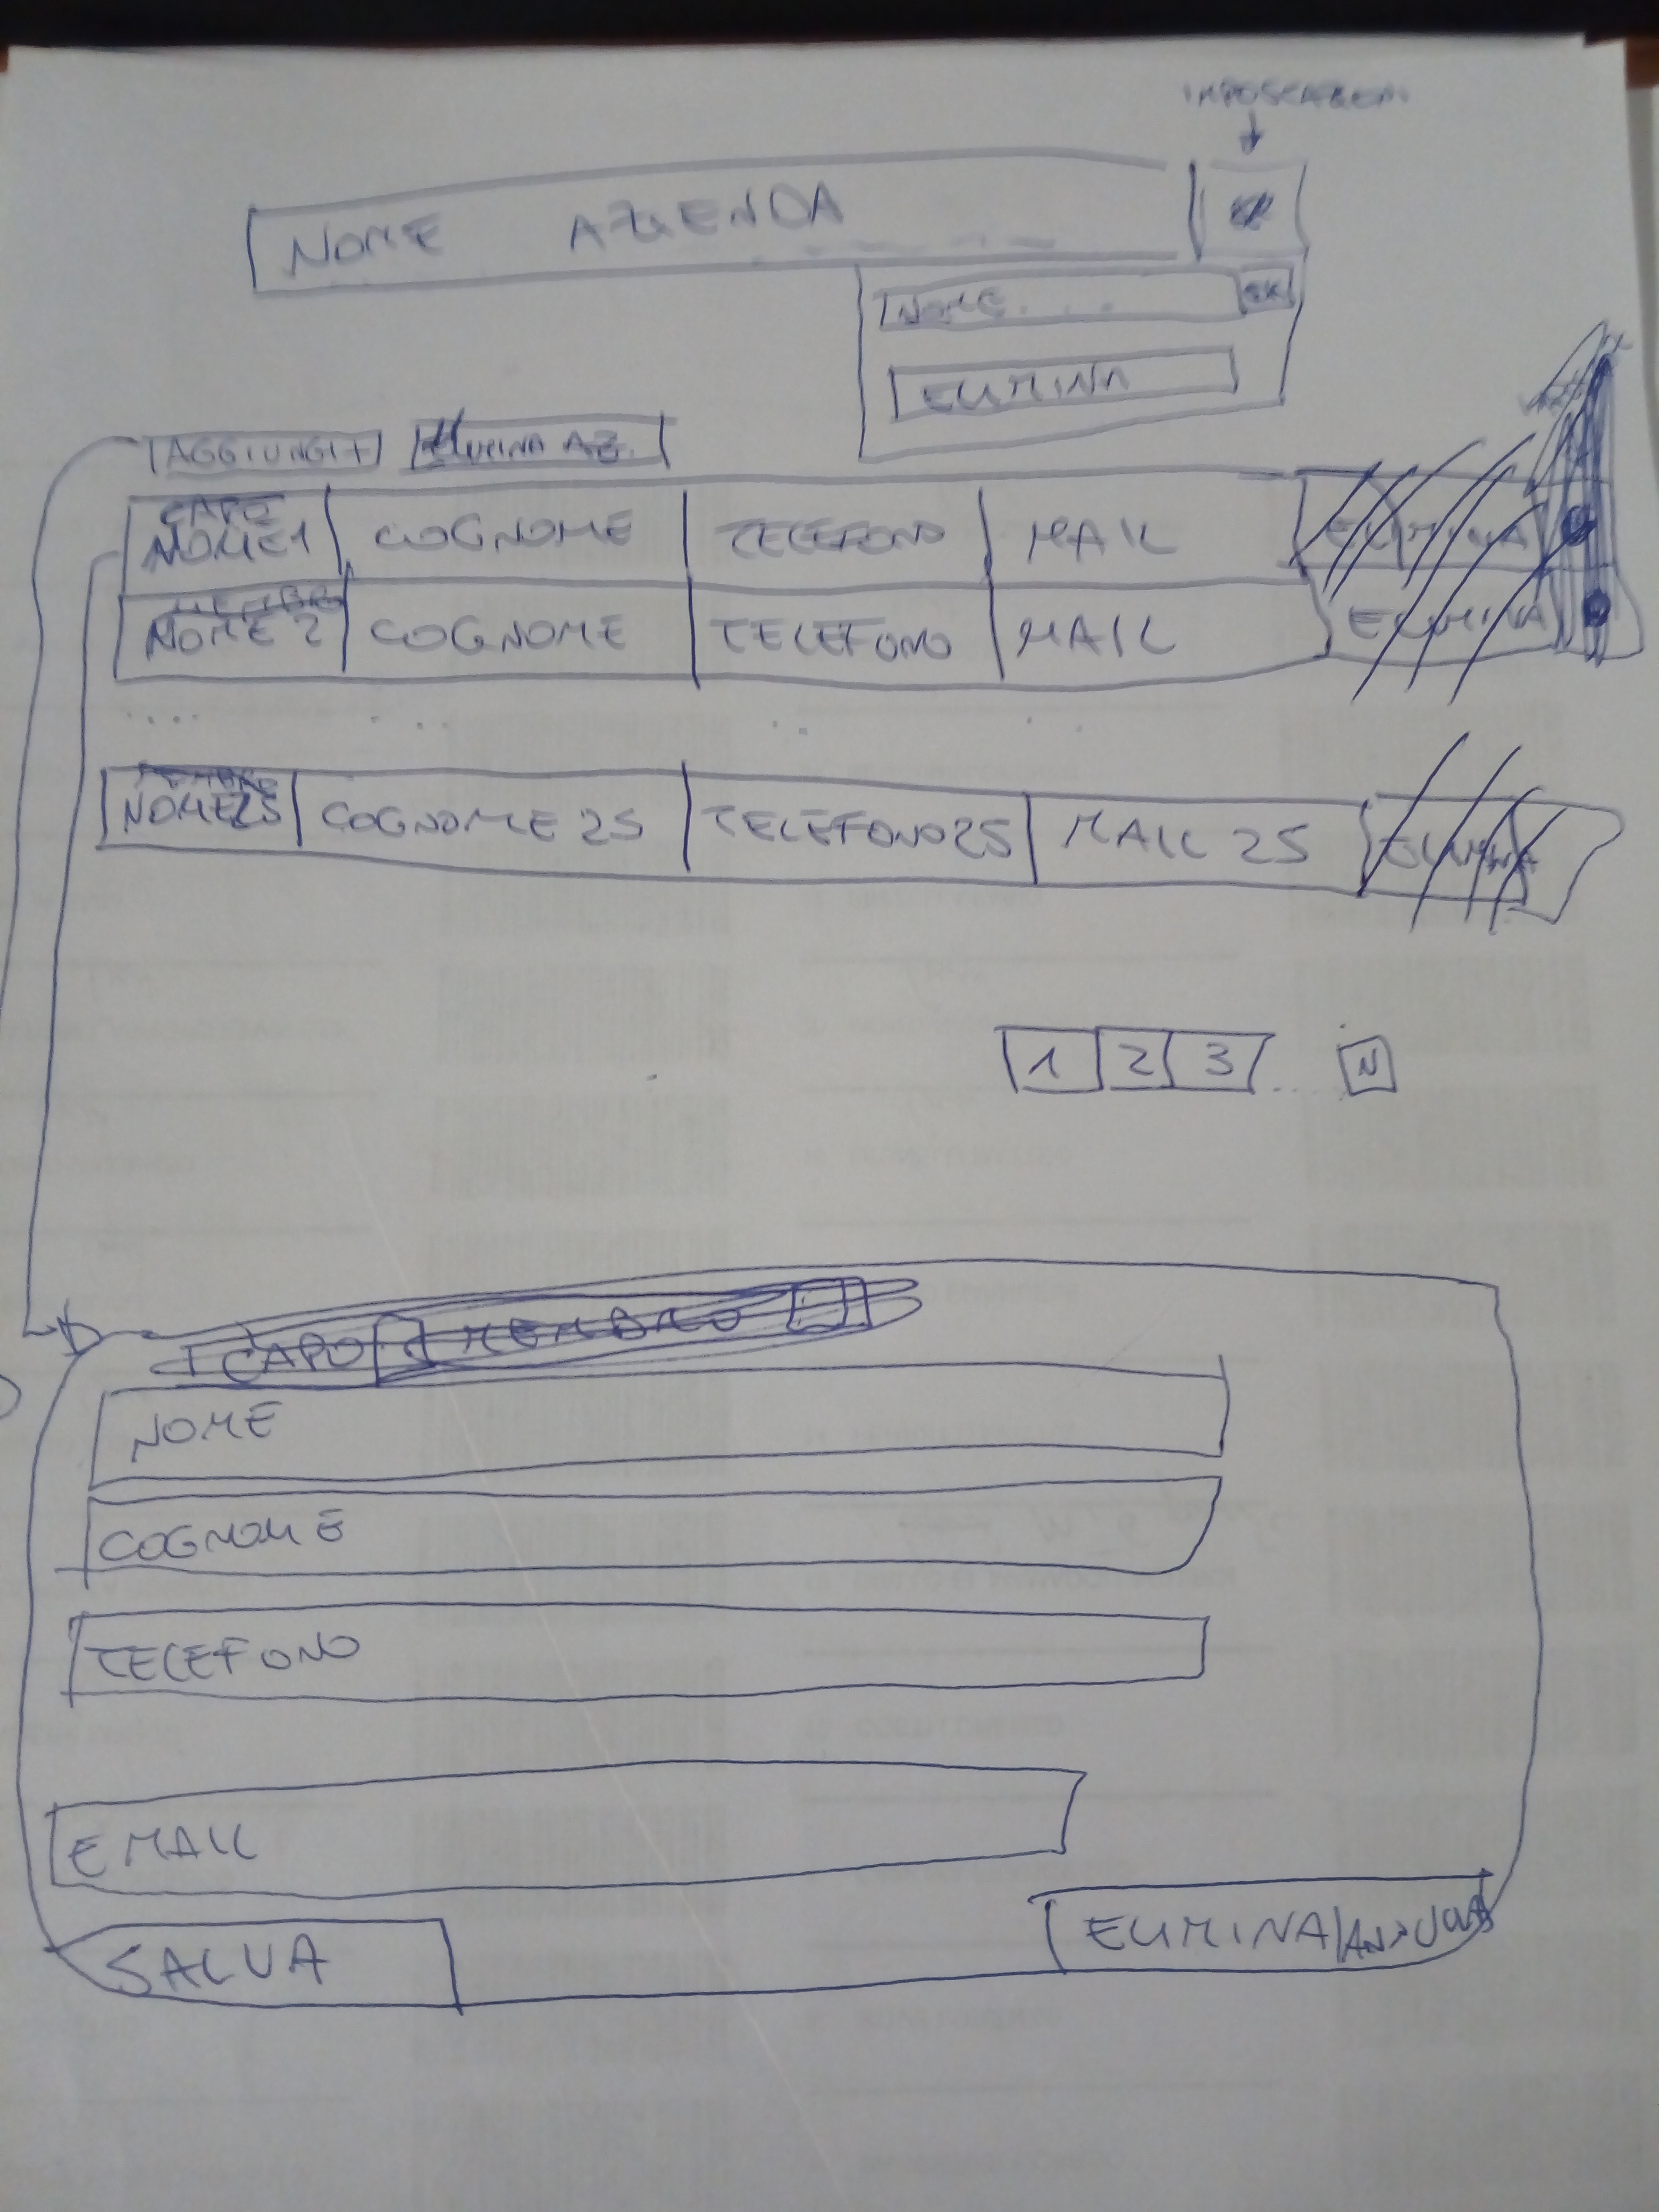 IMPOSTAZIONI
NOME AZIENDA
NOME. . . . OK
ELIMINA
AGGIUNGI + ELIMINA AZ.
CAPO
NOME 1 COGNOME TELEFONO MAIL ELIMINA
MEMBRO
NOME 2 COGNOME TELEFONO MAIL ELIMINA
.... . .. .. .
MEMBRO
NOME25 COGNOME 25 TELEFONO25 MAIL 25 ELIMINA
1 2 3 ... N
CAPO MEMBRO
NOME
COGNOME
TELEFONO
EMAIL
SALVA ELIMINA/ANNULLA